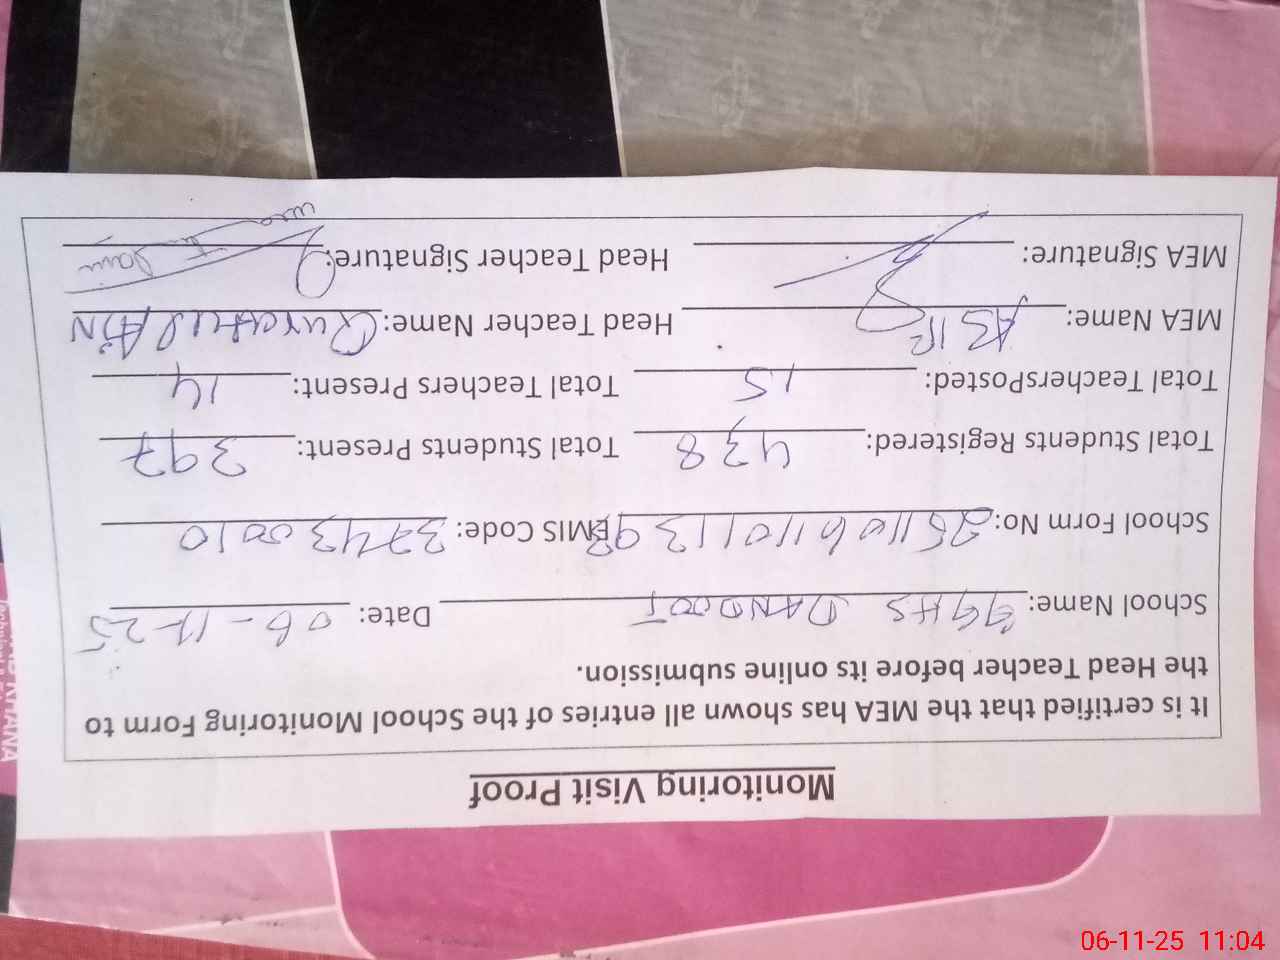 Monitoring Visit Proof
It is certified that the MEA has shown all entries of the School Monitoring Form to
the Head Teacher before its online submission.
School Name: GGHS DANDOOT Date: 06-11-25
School Form No: EMIS Code: 37430010
Total Students Registered: 438 Total Students Present: 397
Total TeachersPosted: 15 Total Teachers Present: 14
MEA Name: ASIF Head Teacher Name: Quratul AIN
MEA Signature: Head Teacher Signature:
06-11-25 11:04